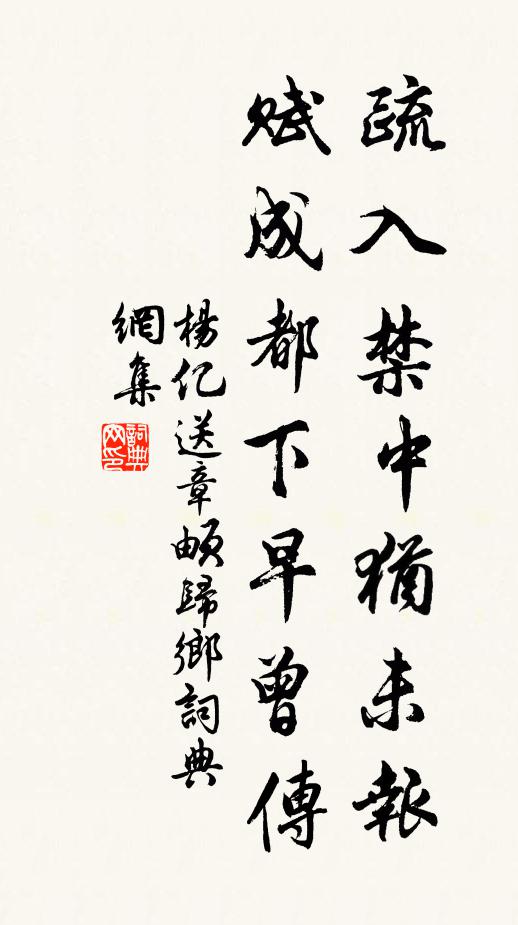 疏入禁中猶未報
賦成都下早曾傳
楊億送章頔歸鄉詞典
網集
詞典
网印